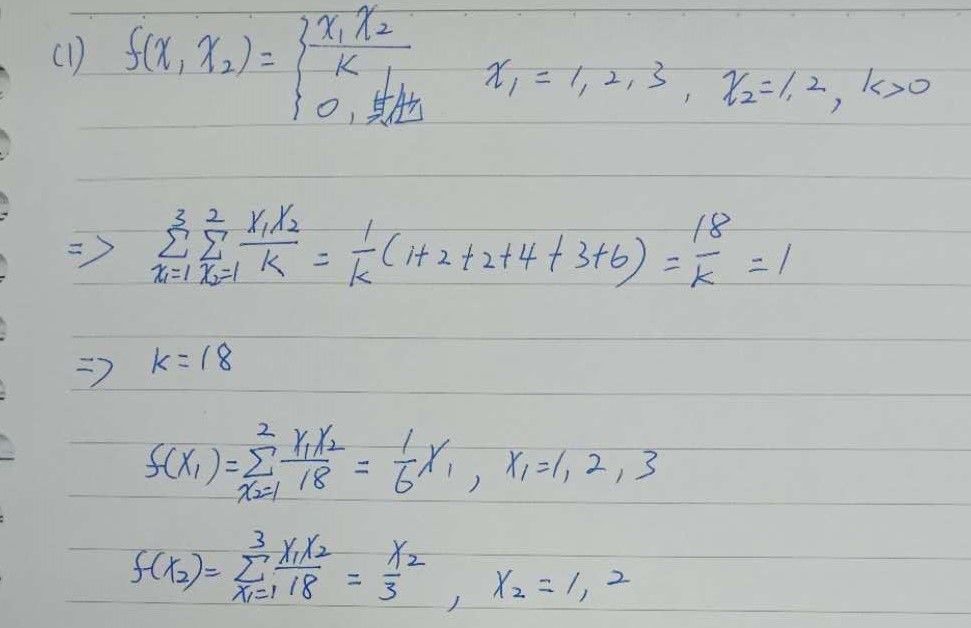 (1) f(x, x₂) = { x₁x₂/k, x₁ = 1, 2, 3, x₂ = 1, 2, k>0
0, 其他
=> Σ_{x₁=1}^{3} Σ_{x₂=1}^{2} x₁x₂/k = 1/k (1+2+2+4+3+6) = 18/k = 1
=> k = 18
f(x₁) = Σ_{x₂=1}^{2} x₁x₂/18 = 1/6 x₁, x₁ = 1, 2, 3
f(x₂) = Σ_{x₁=1}^{3} x₁x₂/18 = x₂/3, x₂ = 1, 2